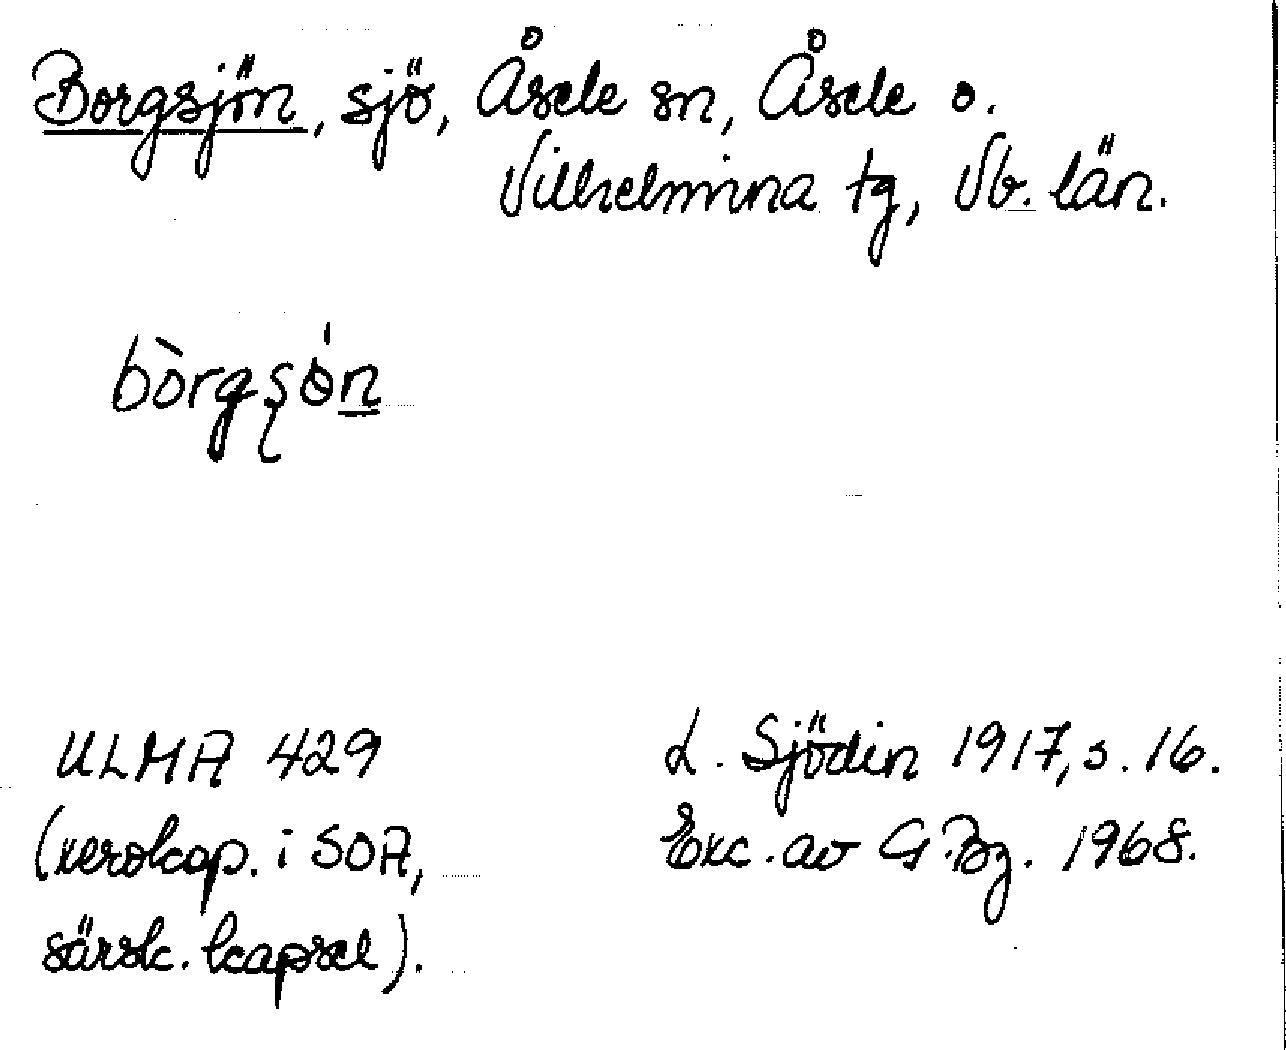 Borgsjön, sjö, Åsele sn, Åsele o.
Vilhelmina tg, Vb. län.
ULMA 429
(xerokop. i SOA,
särsk. kapsel).
L. Sjödin 1917, s. 16.
Exc. av G. Bg. 1968.